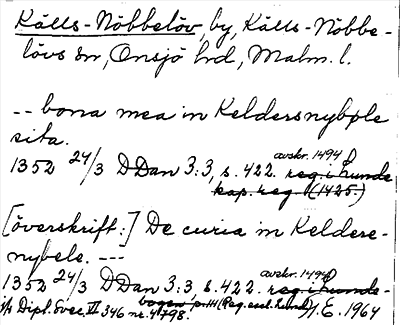 Källs-Nöbbelöv, by, Källs-Nöbbe-
lövs sn, Onsjö hd, Malm. l.
-- bona mea in Keldersnybøle
sita.
1352 24/3 DDan 3:3, s. 422. avskr. 1494 reg. i Lunde
kap. reg. (1425.)
[överskrift:] De curia in Keldere-
nybele. ---
1352 24/3 DDan 3:3 s. 422. avskr. 1494 reg. i Lunde-
Dipl. Svec. VI 346 nr. 4798. bogen p. 111 (Reg. eccl. Lund.) E. 1964